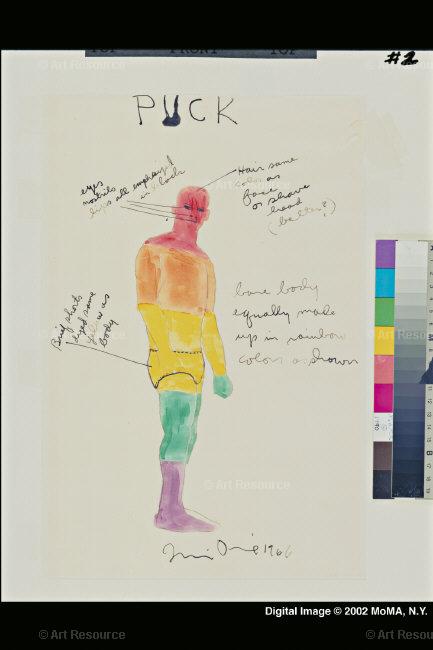 TOP FRONT TOP
#2
© Art Resource
© Art Resource
PUCK
eyes
nostrils
lips all emphasized
in black
Hair same
color as
face
or shave
head
(better?)
© Art Resource
Brief shorts
dyed same
yellow as
body
bare body
equally made
up in rainbow
colors as shown
© Art Resource
Jim Dine 1966
Digital Image © 2002 MoMA, N.Y.
© Art Resource
© Art Resource